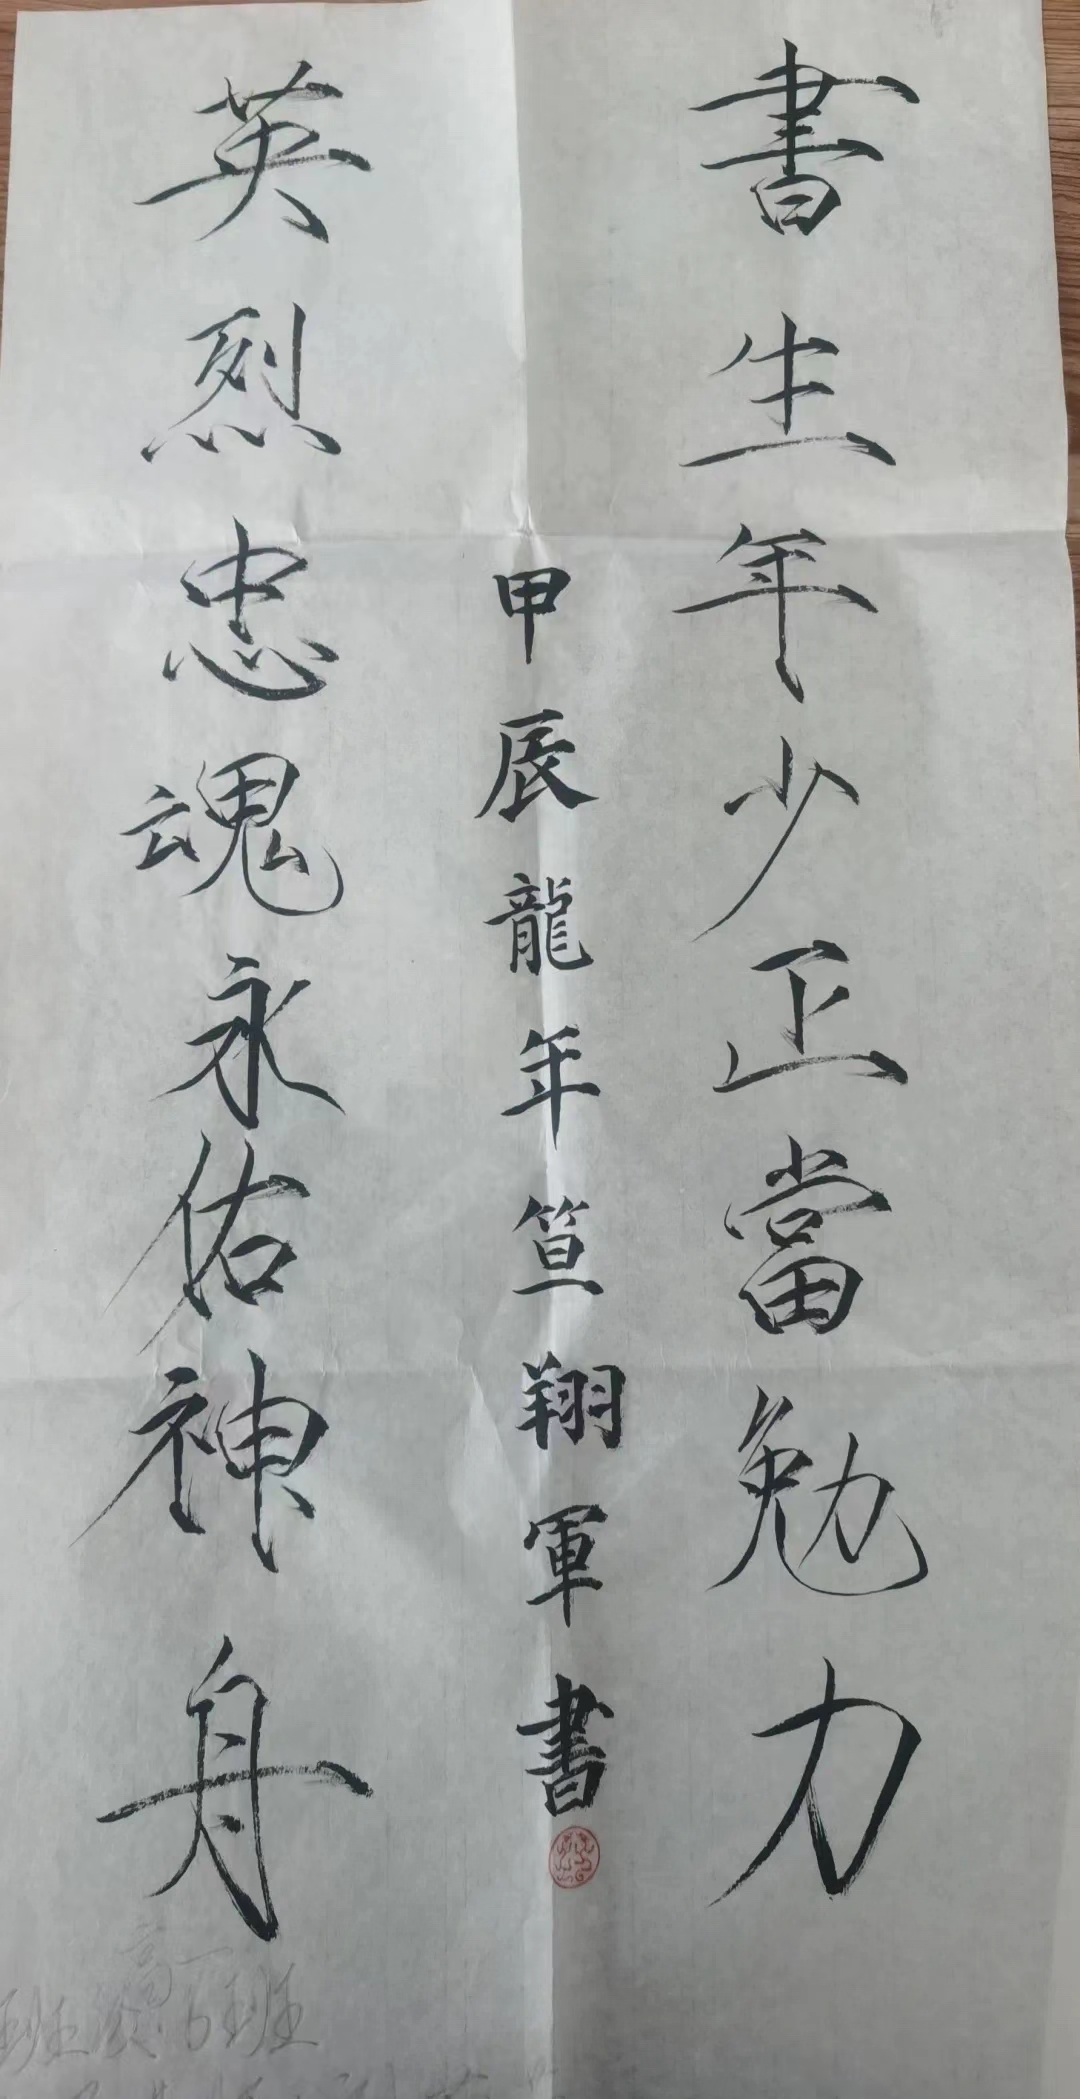 書生年少正當勉力
英烈忠魂永佑神舟
甲辰龍年笪翔軍書
高一
6班